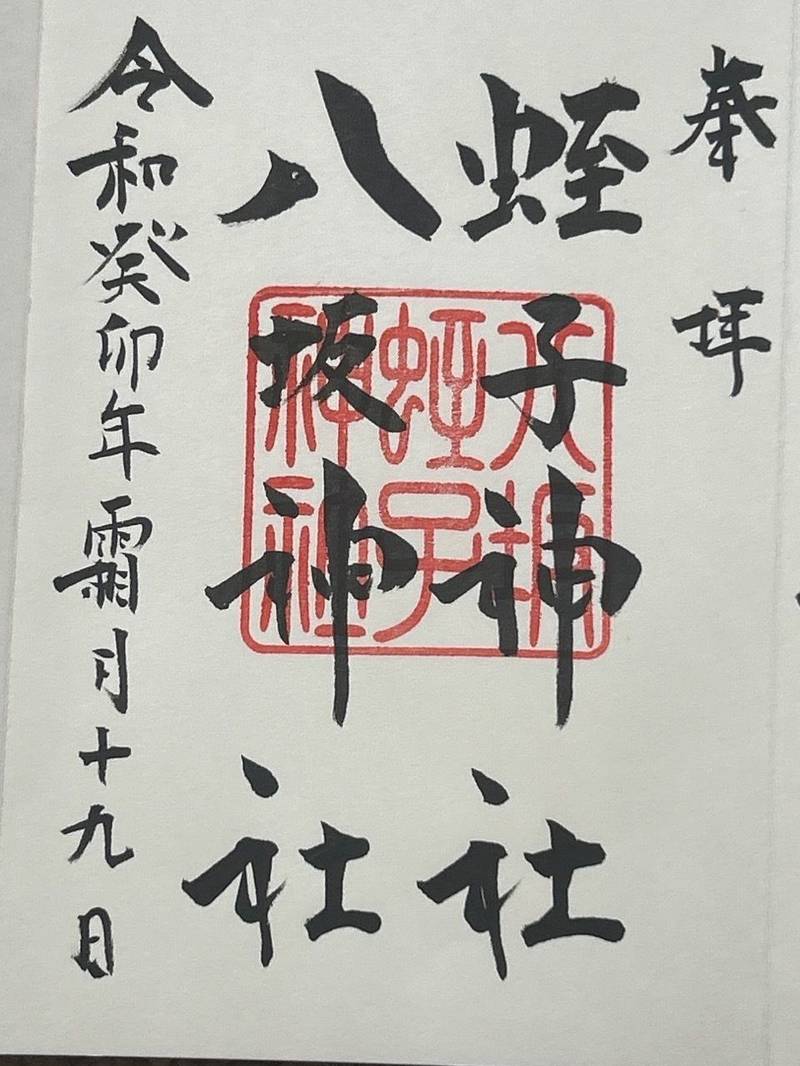 奉拝
蛭子神社
八坂神社
令和癸卯年霜月十九日
八坂
蛭子
神社